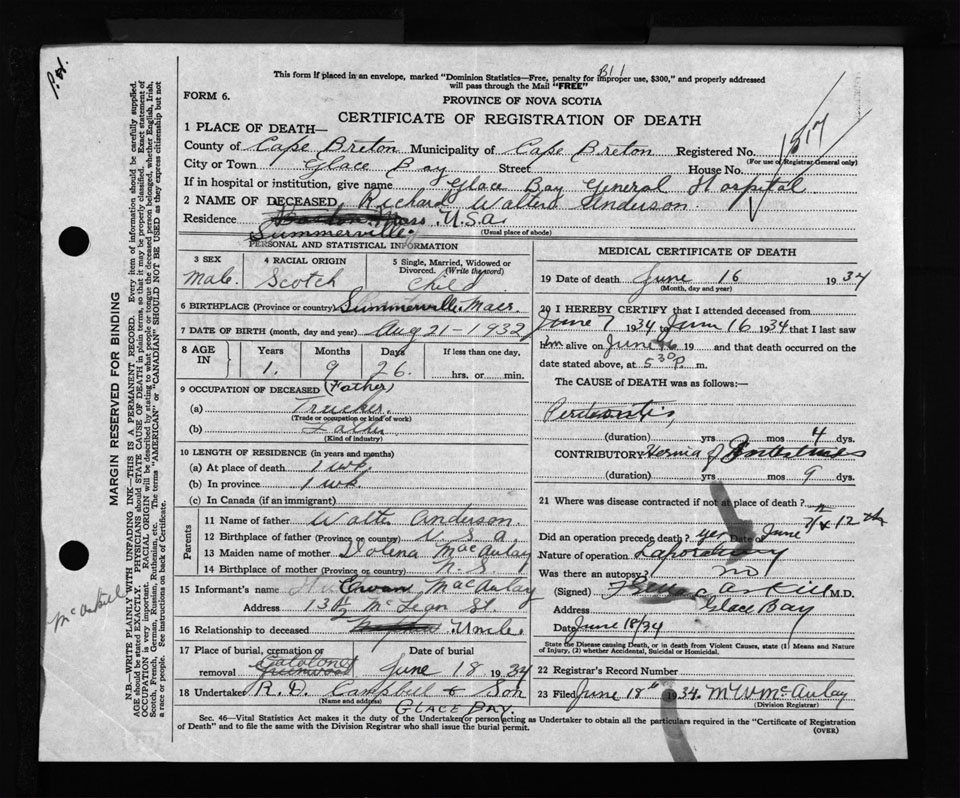 P.H.
This form if placed in an envelope, marked "Dominion Statistics—Free, penalty for improper use, $300," and properly addressed
will pass through the Mail "FREE"
B11
FORM 6.
PROVINCE OF NOVA SCOTIA
CERTIFICATE OF REGISTRATION OF DEATH
1517
1 PLACE OF DEATH—
County of Cape Breton Municipality of Cape Breton Registered No.
(For use of Registrar General only)
City or Town Glace Bay Street House No.
If in hospital or institution, give name Glace Bay General Hospital
2 NAME OF DECEASED Richard Anderson
Residence Boston Mass. U.S.A.
Summerville (Usual place of abode)
PERSONAL AND STATISTICAL INFORMATION
3 SEX 4 RACIAL ORIGIN 5 Single, Married, Widowed or
Divorced. (Write the word)
Male. Scotch Child
6 BIRTHPLACE (Province or country) Summerville Mass
7 DATE OF BIRTH (month, day and year) Aug 21-1932
8 AGE IN Years Months Days If less than one day,
1. 9 26. hrs. or min.
9 OCCUPATION OF DECEASED (Father)
(a) Trucker.
(Trade or occupation or kind of work)
(b) Father
(Kind of industry)
10 LENGTH OF RESIDENCE (in years and months)
(a) At place of death 1 wk.
(b) In province 1 wk.
(c) In Canada (if an immigrant)
Parents
11 Name of father Walter Anderson.
12 Birthplace of father (Province or country) U.S.A.
13 Maiden name of mother MacAulay
14 Birthplace of mother (Province or country) N.S.
15 Informant's name MacAulay
Address McLean St.
16 Relationship to deceased Uncle.
17 Place of burial, cremation or Date of burial
removal Greenwood June 18 1934
18 Undertaker R. D. Campbell & Son
(Name and address)
GLACE BAY.
MEDICAL CERTIFICATE OF DEATH
19 Date of death June 16 1934
(Month, day and year)
20 I HEREBY CERTIFY that I attended deceased from
June 7 1934 to June 16 1934 that I last saw
him alive on June 16 19 and that death occurred on the
date stated above, at 5 30 P. m.
The CAUSE OF DEATH was as follows:
(duration) yrs mos 4 dys.
CONTRIBUTORY Hernia of Intestines
(duration) yrs mos 9 dys.
21 Where was disease contracted if not at place of death?
Did an operation precede death? yes Date of June 7 & 12th
Nature of operation
Was there an autopsy? no
(Signed) M.D.
Address Glace Bay
Date June 18/34
State the Disease causing Death, or in death from Violent Causes, state (1) Means and Nature
of Injury, (2) whether Accidental, Suicidal or Homicidal.
22 Registrar's Record Number
23 Filed June 18th 1934. McAulay
(Division Registrar)
Sec. 46—Vital Statistics Act makes it the duty of the Undertaker or person acting as Undertaker to obtain all the particulars required in the "Certificate of Registration
of Death" and to file the same with the Division Registrar who shall issue the burial permit.
(OVER)
MARGIN RESERVED FOR BINDING
N.B.—WRITE PLAINLY WITH UNFADING INK—THIS IS A PERMANENT RECORD. Every item of information should be carefully supplied.
AGE should be stated EXACTLY. PHYSICIANS should STATE CAUSE OF DEATH in plain terms, so that it may be properly classified. Exact statement of
OCCUPATION is very important. RACIAL ORIGIN will be described by stating to what people or tongue the deceased person belonged, whether English, Irish,
Scotch, French, German, Russian, Ruthenian, etc. The terms "AMERICAN" or "CANADIAN" SHOULD NOT BE USED as they express citizenship but not
a race or people. See instructions on back of Certificate.